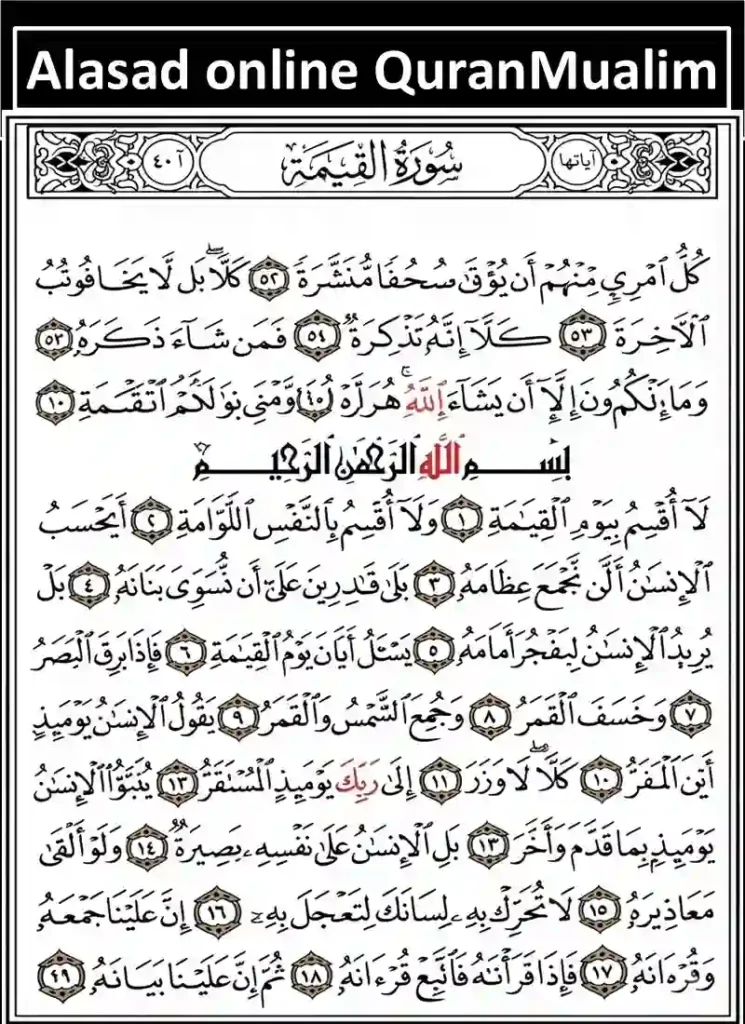 Alasad online QuranMualim
آياتها سُورَةُ القِيَمَة آ٤٠
كُلُّ ٱمْرِيٍ مِّنْهُمْ أَن يُؤْقَ سُحُفًا مُّنَشَّرَةً ٥٢ كَلَّاۖ بَل لَّا يَخَافُوتُبُ
ٱلْأَخِرَةَ ٥٣ كَلَّا إِنَّهُ تَذْكِرَةٌ ٥٤ فَمَن شَآءَ ذَكَرَهُۥ ٥٣
إِلَّآ أَن يَشَآءَ ٱللَّهُ ١٠
بِسْمِ ٱللَّهِ ٱلرَّحْمَٰنِ ٱلرَّحِيمِ
لَآ أُقْسِمُ بِيَوْمِ ٱلْقِيَٰمَةِ ١ وَلَآ أُقْسِمُ بِٱلنَّفْسِ ٱللَّوَّامَةِ ٢ أَيَحْسَبُ
ٱلْإِنسَٰنُ أَلَّن نَّجْمَعَ عِظَامَهُۥ ٣ بَلَىٰ قَٰدِرِينَ عَلَىٰٓ أَن نُّسَوِّىَ بَنَانَهُۥ ٤ بَلْ
يُرِيدُ ٱلْإِنسَٰنُ لِيَفْجُرَ أَمَامَهُۥ ٥ يَسْـَٔلُ أَيَّانَ يَوْمُ ٱلْقِيَٰمَةِ ٦ فَإِذَا بَرِقَ ٱلْبَصَرُ
٧ وَخَسَفَ ٱلْقَمَرُ ٨ وَجُمِعَ ٱلشَّمْسُ وَٱلْقَمَرُ ٩ يَقُولُ ٱلْإِنسَٰنُ يَوْمَئِذٍ
أَيْنَ ٱلْمَفَرُّ ١٠ كَلَّاۖ لَا وَزَرَ ١١ إِلَىٰ رَبِّكَ يَوْمَئِذٍ ٱلْمُسْتَقَرُّ ١٣ يُنَبَّؤُا۟ ٱلْإِنسَٰنُ
يَوْمَئِذٍۭ بِمَا قَدَّمَ وَأَخَّرَ ١٣ بَلِ ٱلْإِنسَٰنُ عَلَىٰ نَفْسِهِۦ بَصِيرَةٌ ١٤ وَلَوْ أَلْقَىٰ
مَعَاذِيرَهُۥ ١٥ لَا تُحَرِّكْ بِهِۦ لِسَانَكَ لِتَعْجَلَ بِهِۦٓ ١٦ إِنَّ عَلَيْنَا جَمْعَهُۥ
وَقُرْءَانَهُۥ ١٧ فَإِذَا قَرَأْنَٰهُ فَٱتَّبِعْ قُرْءَانَهُۥ ١٨ ثُمَّ إِنَّ عَلَيْنَا بَيَانَهُۥ ٤٩